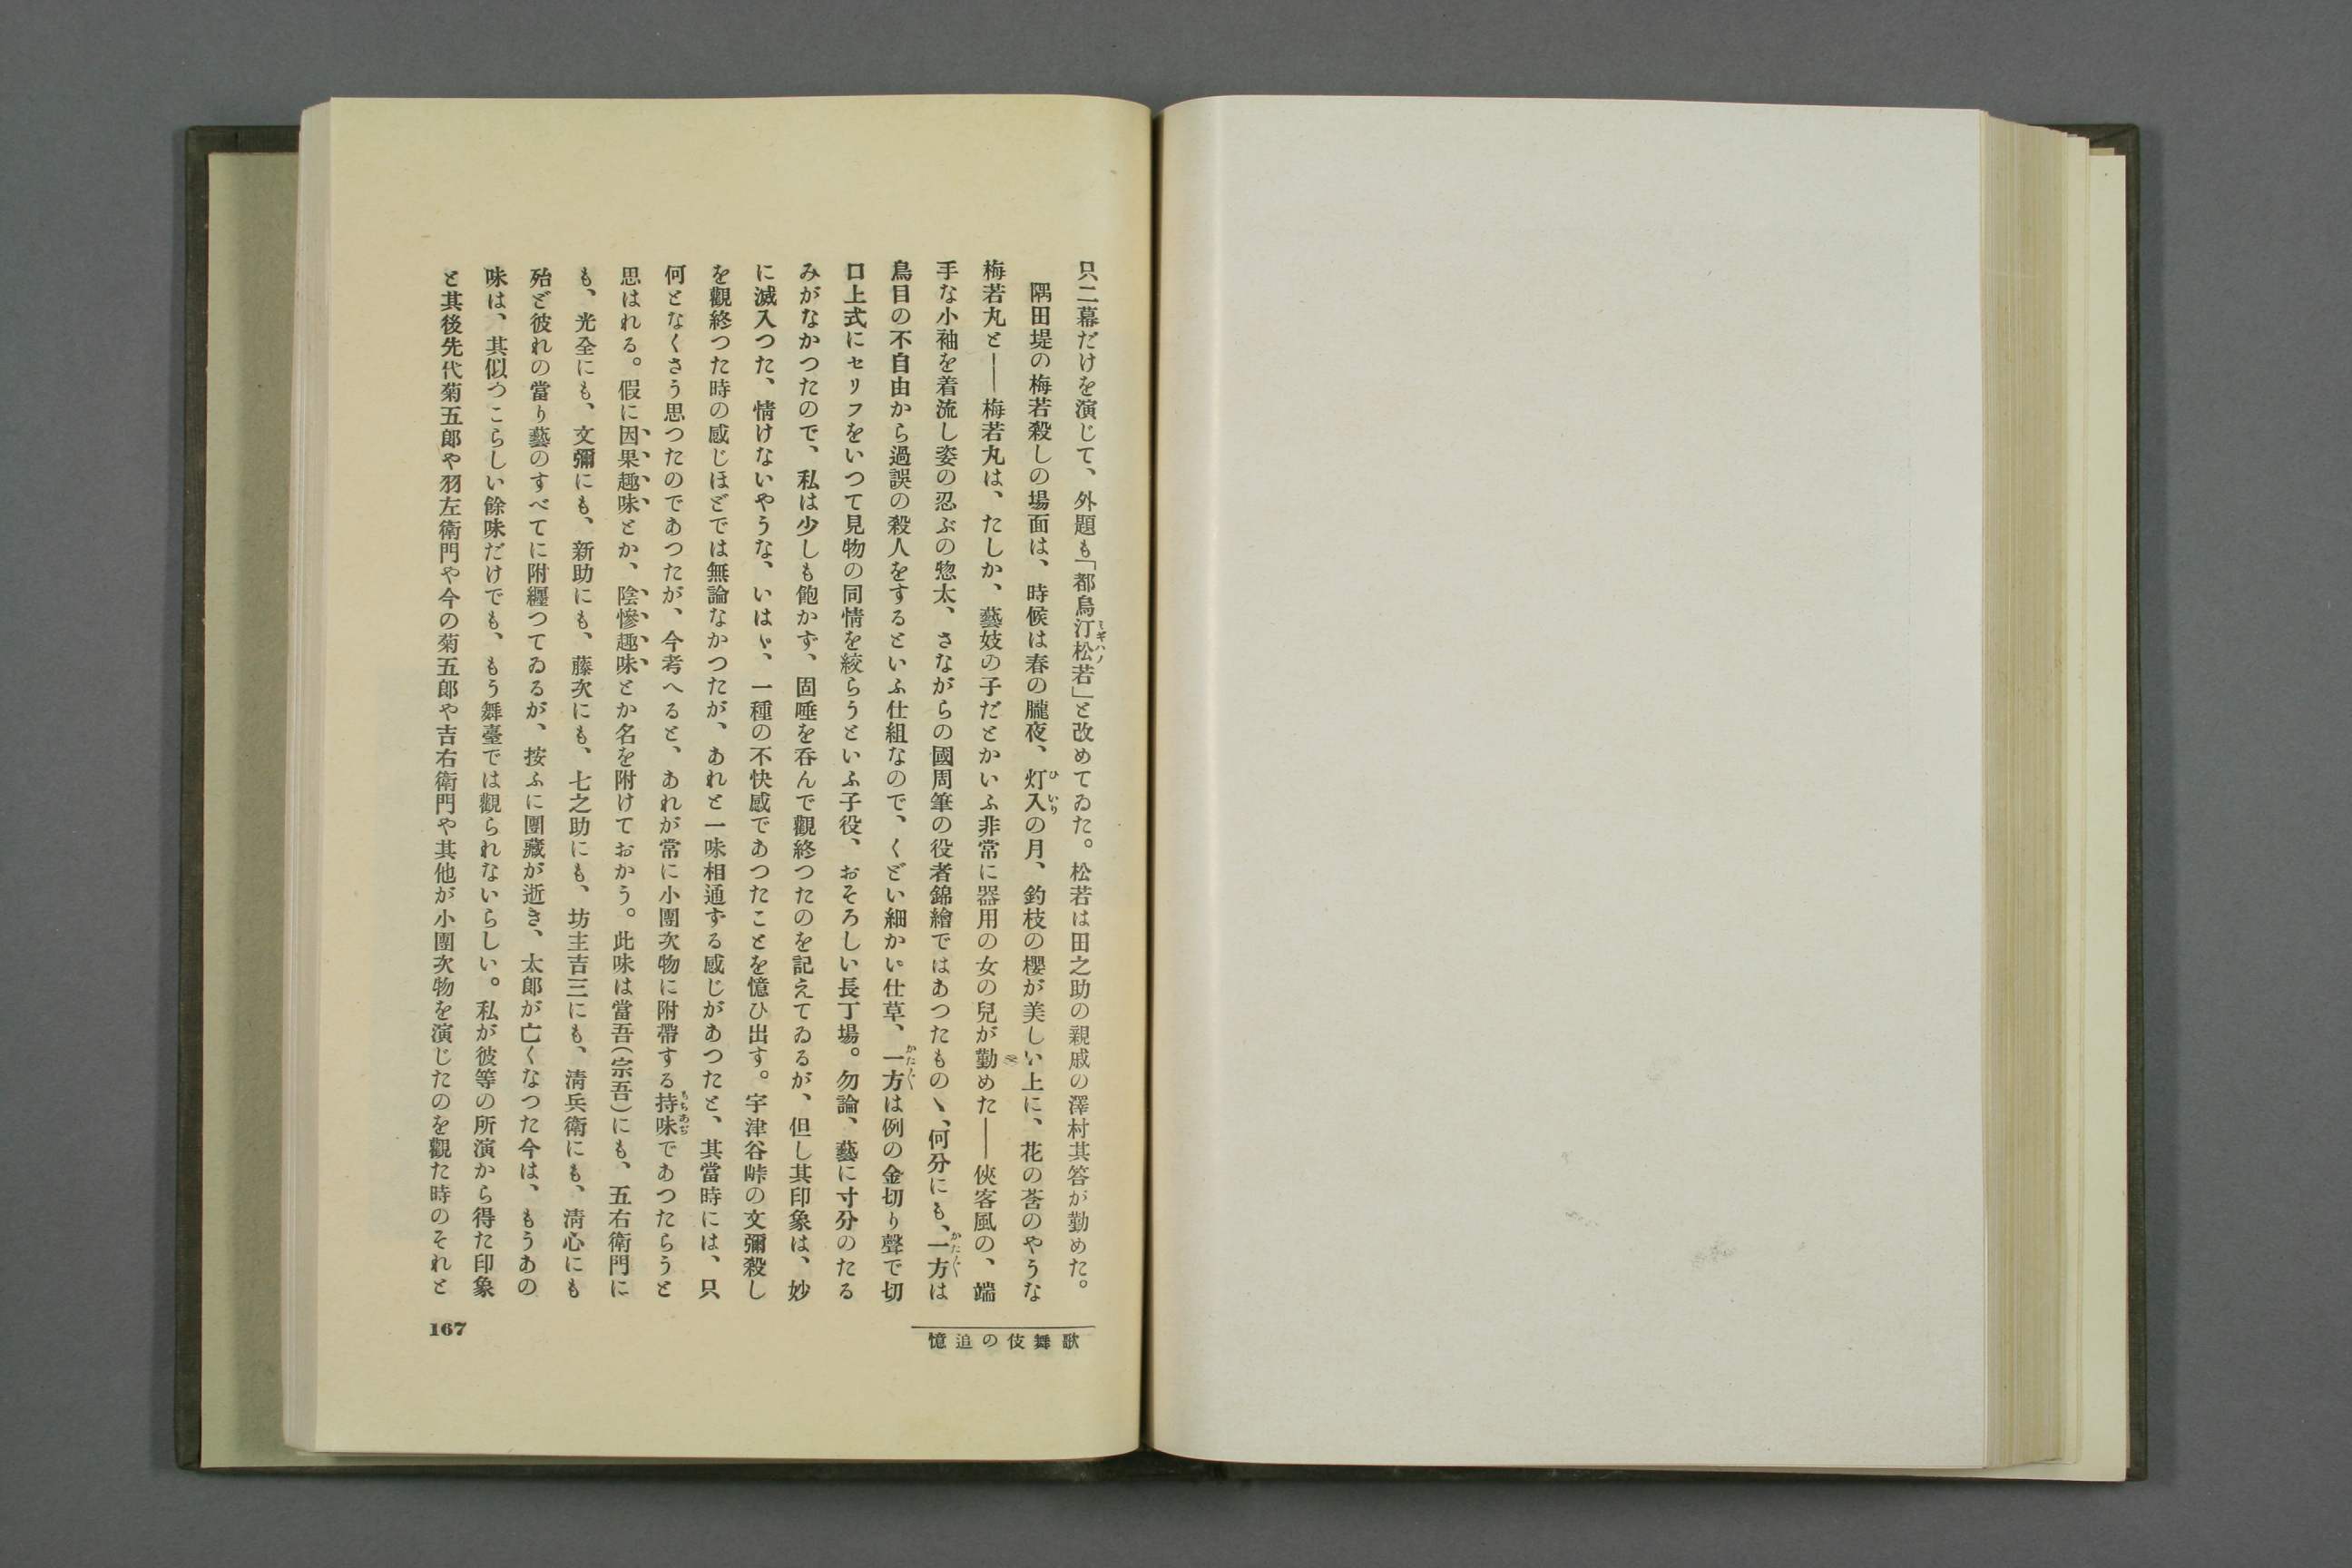 只二幕だけを演じて、外題も「都鳥汀松若」と改めてゐた。松若は田之助の親戚の澤村其答が勤めた。
隅田堤の梅若殺しの場面は、時候は春の朧夜、灯入の月、釣枝の櫻が美しい上に、花の莟のやうな
梅若丸と――梅若丸は、たしか、藝妓の子だとかいふ非常に器用の女の兒が勤めた――俠客風の、端
手な小袖を着流し姿の忍ぶの惣太、さながらの國周筆の役者錦繪ではあつたものゝ、何分にも、一方は
鳥目の不自由から過誤の殺人をするといふ仕組なので、くどい細かい仕草、一方は例の金切り聲で切
口上式にセリフをいつて見物の同情を絞らうといふ子役、おそろしい長丁場。勿論、藝に寸分のたる
みがなかつたので、私は少しも飽かず、固唾を呑んで觀終つたのを記えてゐるが、但し其印象は、妙
に滅入つた、情けないやうな、いはゞ、一種の不快感であつたことを憶ひ出す。宇津谷峠の文彌殺し
を觀終つた時の感じほどでは無論なかつたが、あれと一味相通ずる感じがあつたと、其當時には、只
何となくさう思つたのであつたが、今考へると、あれが常に小團次物に附帶する持味であつたらうと
思はれる。假に因果趣味とか、陰慘趣味とか名を附けておかう。此味は當吾(宗吾)にも、五右衛門に
も、光全にも、文彌にも、新助にも、藤次にも、七之助にも、坊主吉三にも、淸兵衛にも、淸心にも
殆ど彼れの當り藝のすべてに附纒つてゐるが、按ふに團藏が逝き、太郎が亡くなつた今は、もうあの
味は、其似つこらしい餘味だけでも、もう舞臺では觀られないらしい。私が彼等の所演から得た印象
と其後先代菊五郎や羽左衛門や今の菊五郎や吉右衛門や其他が小團次物を演じたのを觀た時のそれと
歌舞伎の追憶
167